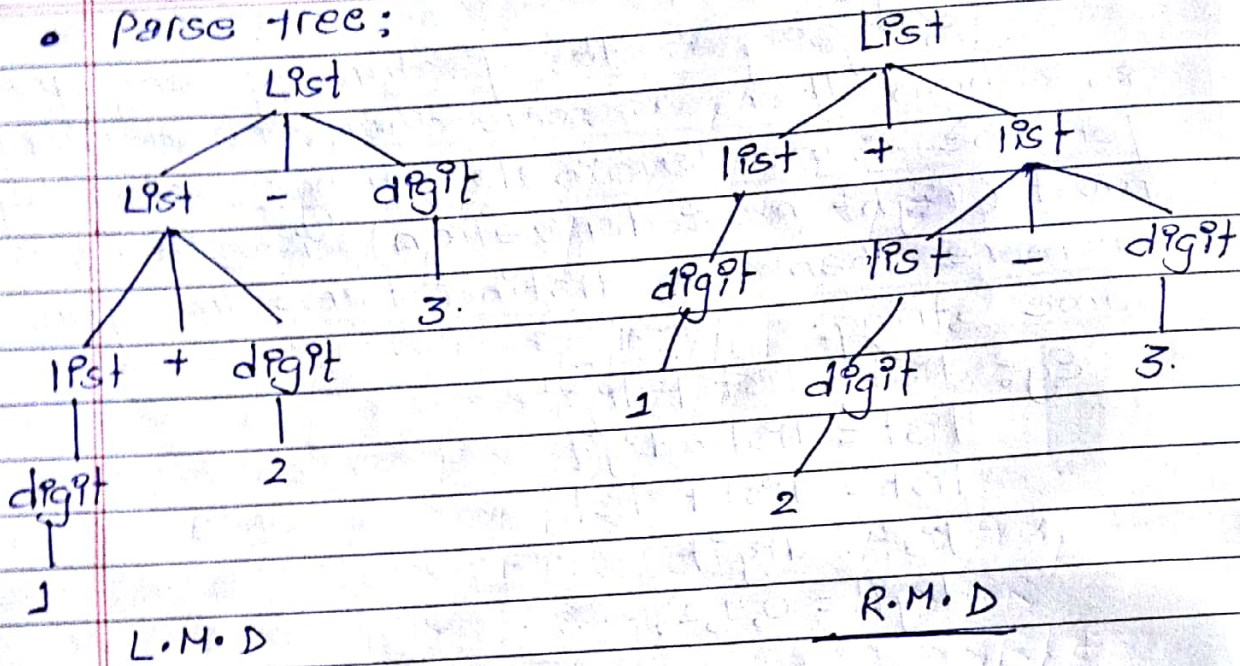 • Parse tree;
List
List - digit
list + digit
3.
digit
2
1
L.M.D
List
list + list
digit
list - digit
1
digit
3.
2
R.M.D